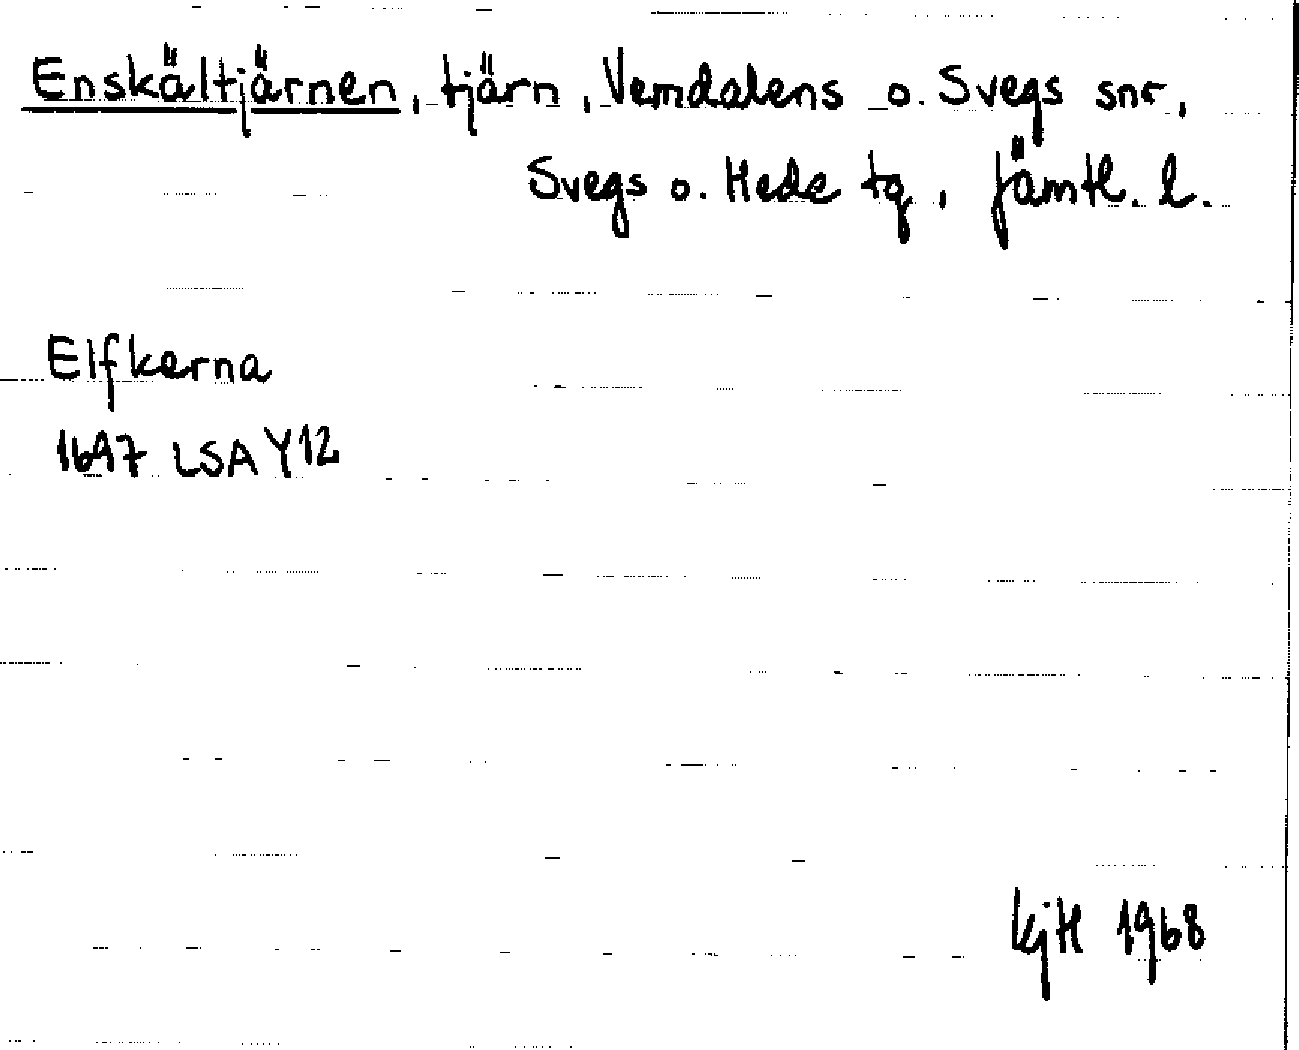 Enskältjärnen, tjärn, Vemdalens o. Svegs snr,
Svegs o. Hede tg, Jämtl. l.
Elfkerna
1697 LSA Y12
KjH 1968